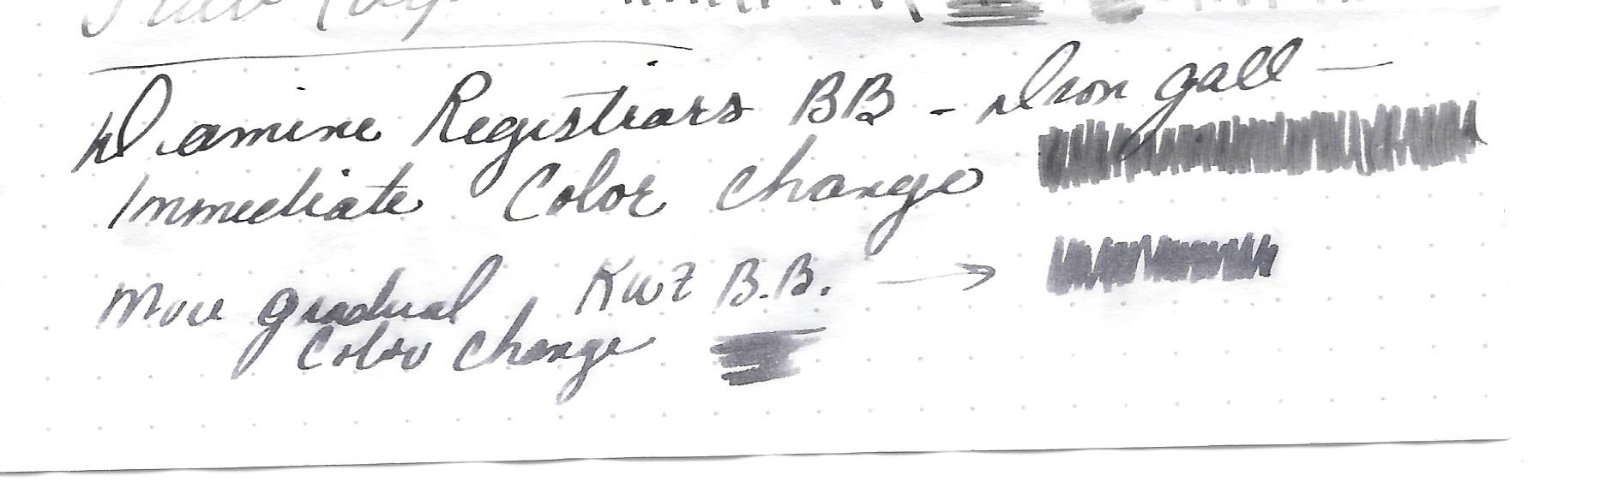 Diamine Registrars BB - Iron gall —
Immediate Color change
More gradual KWZ B.B. →
Color change